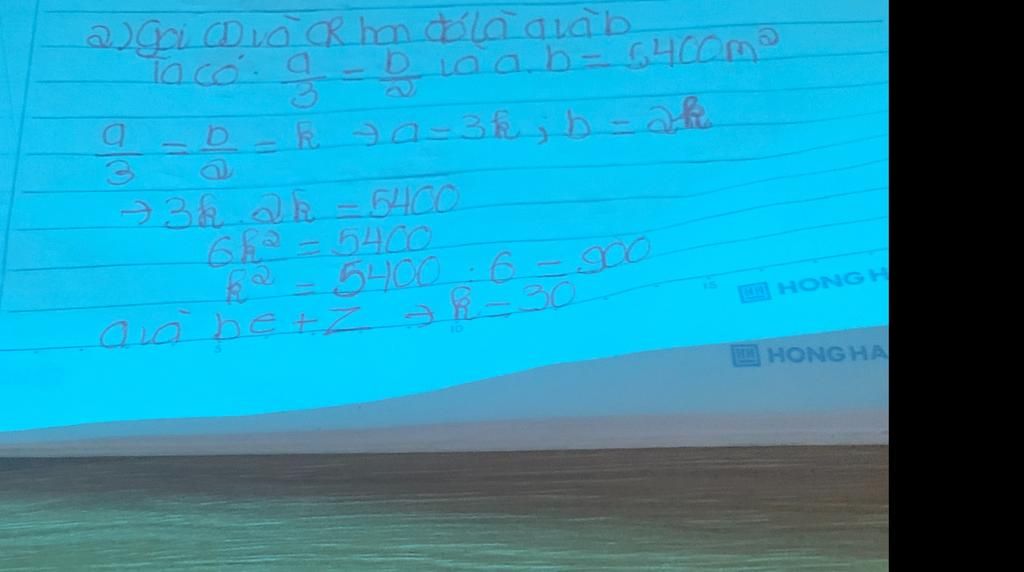 a) Gọi CD và CR hcn đó là a và b
Ta có: a/3 = b/2 và a.b = 5400m²
a/3 = b/2 = k → a = 3k ; b = 2k
→ 3k.2k = 5400
6k² = 5400
k² = 5400 : 6 = 900
a và b ∈ +Z → k = 30
HONG H
HONG HA